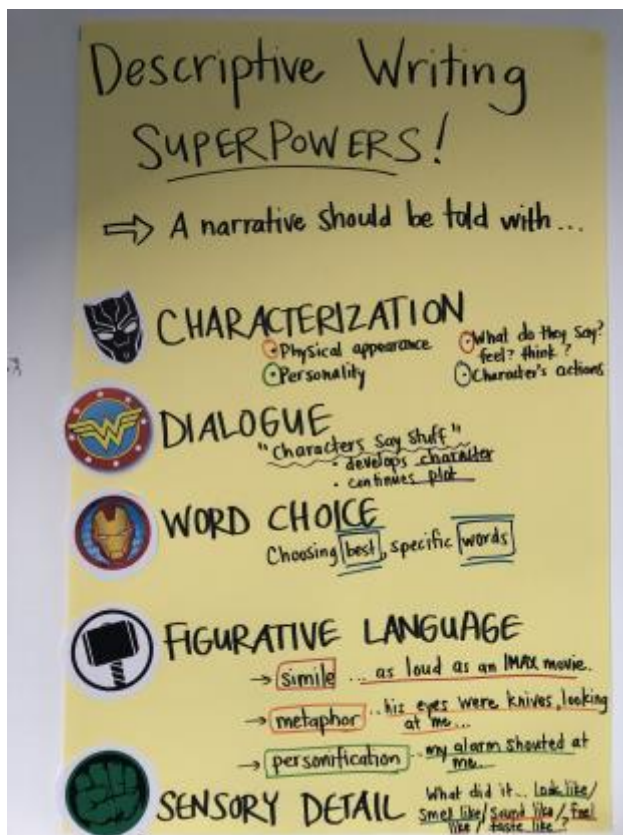 Descriptive Writing
SUPERPOWERS!
⇒ A narrative should be told with...
CHARACTERIZATION
• Physical appearance
• Personality
• What do they say?
feel? think?
• Character's actions
DIALOGUE
"Characters Say Stuff"
• develops character
• continues plot
WORD CHOICE
Choosing best, specific words
FIGURATIVE LANGUAGE
→ simile ... as loud as an IMAX movie.
→ metaphor ...his eyes were knives, looking
at me...
→ personification ...my alarm shouted at
me...
SENSORY DETAIL
What did it... Look like/
smell like/sound like/feel
like/taste like..?